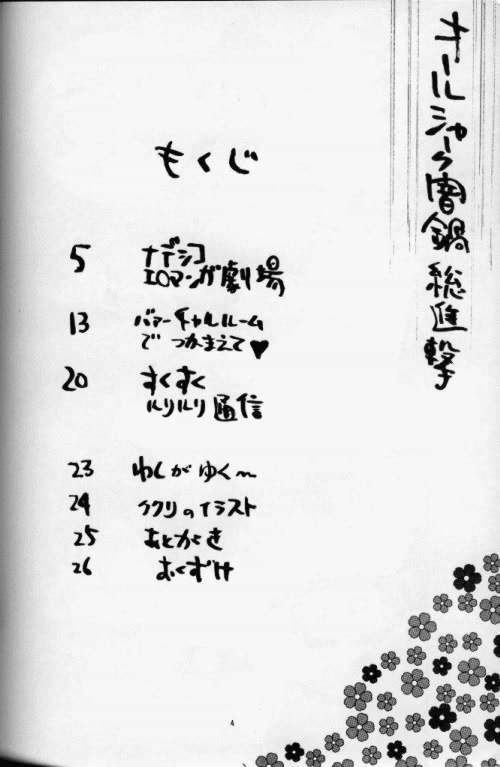 オールジャーク闇鍋総進撃
もくじ
5 ナデシコ
エロマンガ劇場
13 バーチャルルーム
で つかまえて♥
20 すくすく
ルリルリ通信
23 わしがゆく〜
24 ククリのイラスト
25 あとがき
26 おくずけ
4